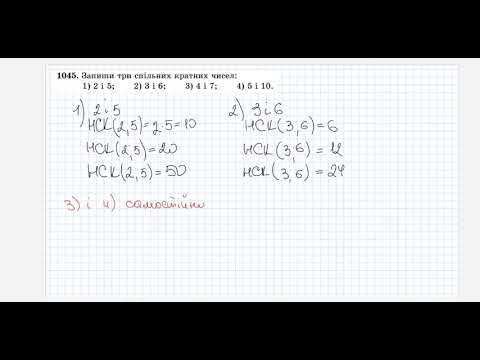 1045. Запиши три спільних кратних чисел:
1) 2 і 5; 2) 3 і 6; 3) 4 і 7; 4) 5 і 10.
1) 2 і 5
НСК(2,5)=2·5=10
НСК(2,5)=20
НСК(2,5)=50
2) 3 і 6
НСК(3,6)=6
НСК(3,6)=12
НСК(3,6)=24
3) і 4) самостійно